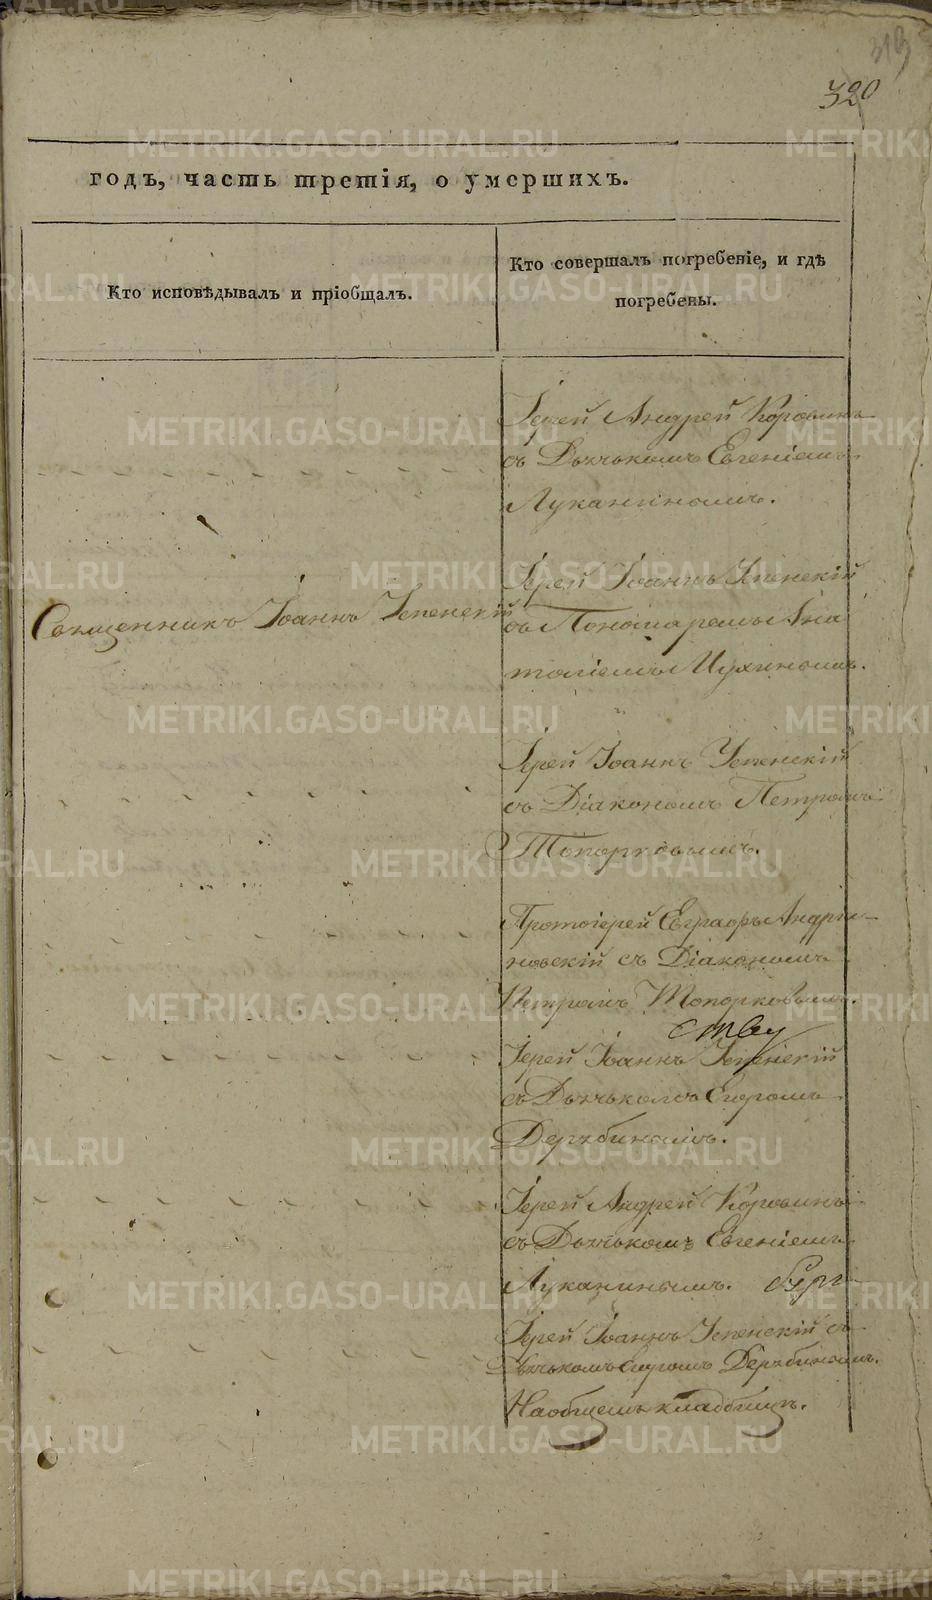 319
320
годъ, часть третія, о умершихъ.
Кто исповѣдывалъ и пріобщалъ.
Кто совершалъ погребеніе, и гдѣ
погребены.
Іерей Андрей Коровинъ
съ Дьячькомъ Евгеніемъ
Луканинымъ.
Священникъ Іоаннъ Успенскій
Іерей Іоаннъ Успенскій
съ Пономаремъ Ана
толіемъ Мухинымъ.
Іерей Іоаннъ Успенскій
съ Діакономъ Петромъ
Топорковымъ.
Протоіерей Евграфъ Андріа-
новскій съ Діакономъ
Петромъ Топорковымъ.
ству
Іерей Іоаннъ Успенскій
съ Дьячькомъ Егоромъ
Дерябинымъ.
Іерей Андрей Коровинъ
съ Дьячькомъ Евгеніемъ
Луканинымъ.
Іерей Іоаннъ Успенскій съ
Дьячькомъ Егоромъ Дерябинымъ.
На общемъ кладбищѣ.
METRIKI.GASO-URAL.RU